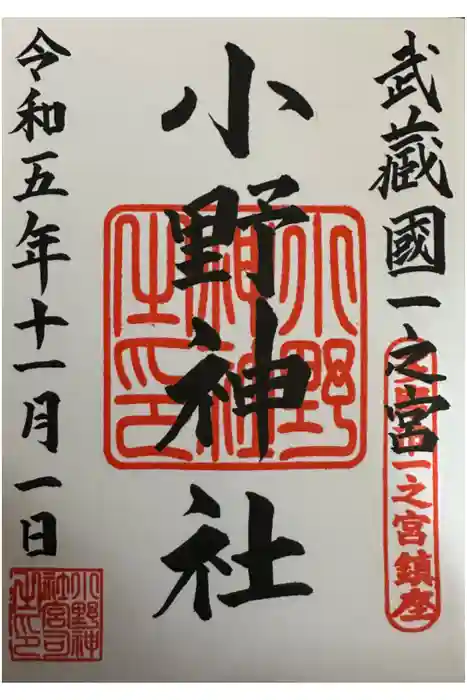 武藏國一之宮
一之宮鎮座
小野神社
小野
神社
之印
令和五年十一月一日
小野神
社宮司
之印